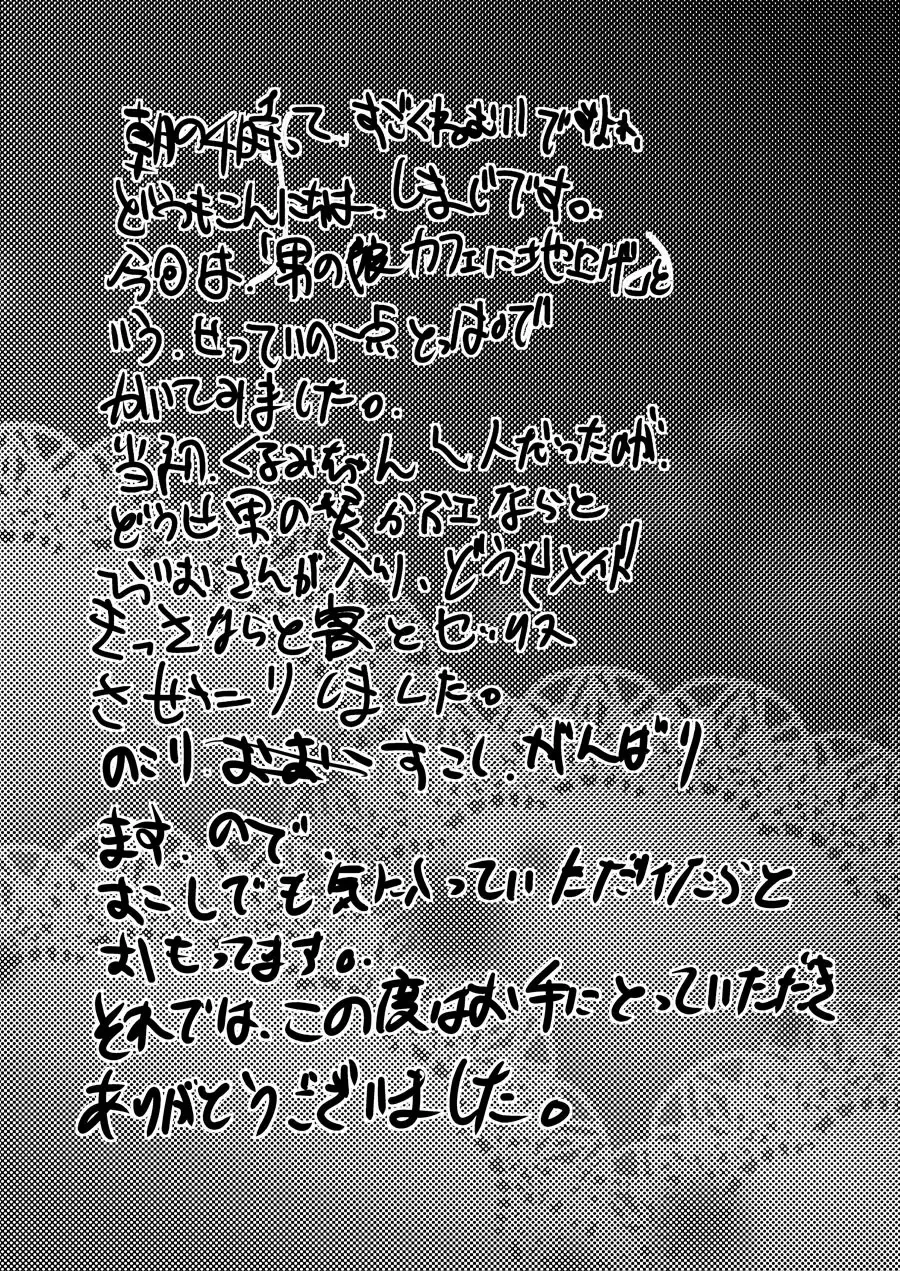 朝の4時って、すごくねむいですよね、
どうもこんにちは、しまじです。
今回は、「男の娘カフェに地上げ」と
いう、せっていの一点とっぱで
かいてみました。
当初、くるみちゃん1人だったのが、
どうせ男の娘かふェならと
らいむさんが入り、どうせメイド
きっさならと客とセックス
させたりしました。
のこり、すこし、がんばり
ます、ので、
すこしでも気に入っていただけたらと
おもってます。
それでは、この度はお手にとっていただき
ありがとうございました。